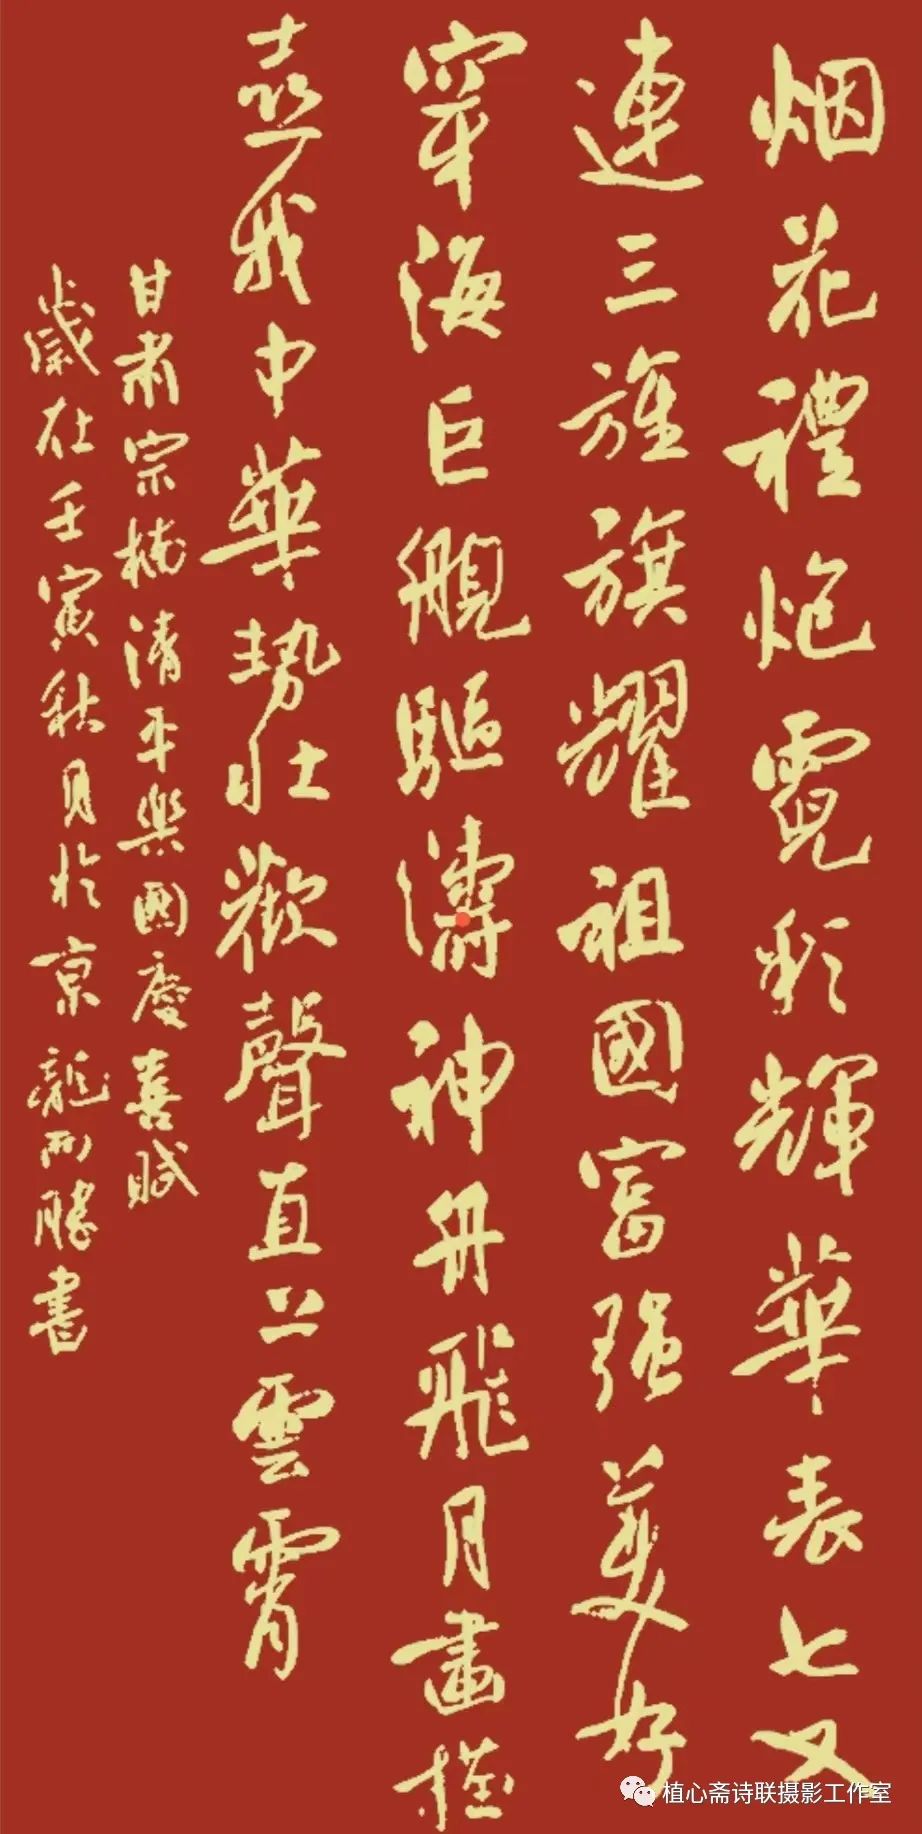 烟花禮炮霓彩輝華表七又
連三旌旗耀祖國富强美好
穿海巨舰驅濤神舟飛月畫
喜我中華势壯歡聲直上雲霄
甘肃宗清平樂國慶喜賦
歲在壬寅秋月於京龍雨勝書
植心斋诗联摄影工作室